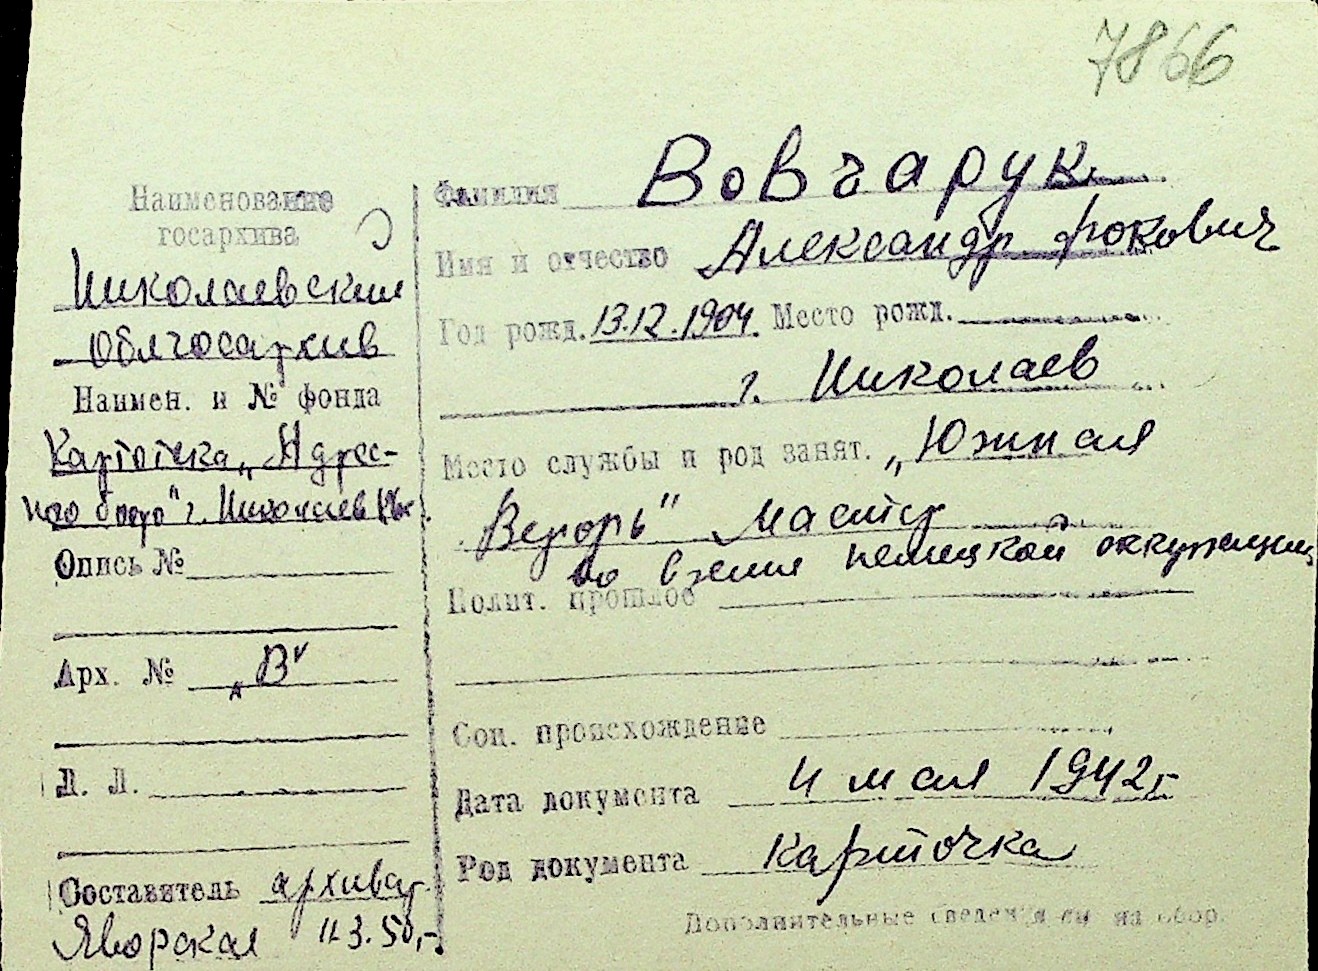 7866
Наименование
госархива
Николаевский
Облгосархив
Наимен. и № фонда
Картотека „Адрес-
ного бюро" г. Николаев
Опись №
Арх. № „В"
Л. Л.
Составитель архивар.
Яворская 11.3.50г.
Фамилия Вовчарук
Имя и отчество Александр Фокович
Год рожд. 13.12.1904. Место рожд.
г. Николаев
Место службы и род занят. „Южная
Верфь" Мастер
во время немецкой оккупации
Полит. прошлое
Соц. происхождение
Дата документа 4 мая 1942г
Род документа Карточка
Дополнительные сведения см на обор.